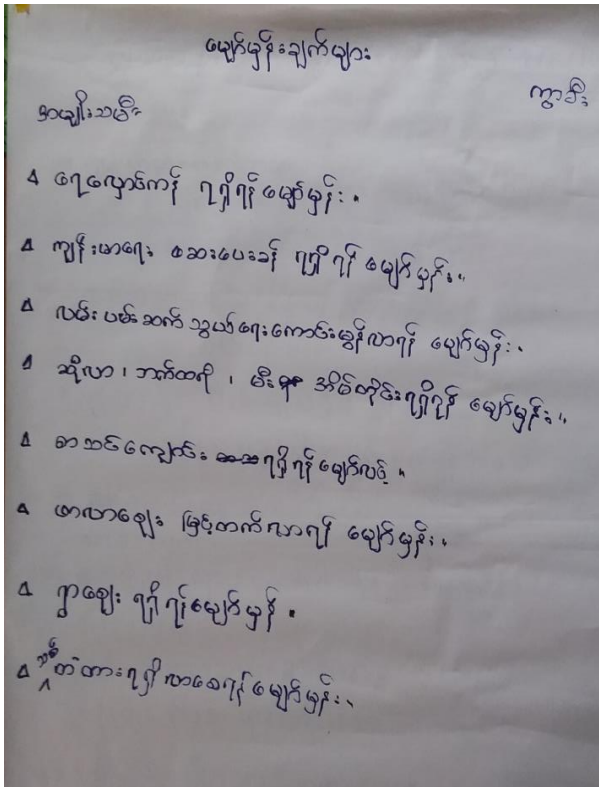 မျှော်မှန်းချက်များ
ကွာဒီး
အမျိုးသမီး
ရေလှောင်ကန် ရရှိရန် မျှော်မှန်း။
ကျန်းမာရေး ဆေးပေးခန် ရရှိရန် မျှော်မှန်း။
လမ်းပမ်းဆက်သွယ်ရေးကောင်းမွန်လာရန် မျှော်မှန်း။
ဆိုလာ၊ ဘက်ထရီ၊ မီး အိမ်တိုင်းရရှိရန် မျှော်မှန်း။
စာသင်ကျောင်း ရရှိရန် မျှော်လင့်။
ဖာလာဈေး မြင့်တက်လာရန် မျှော်မှန်း။
ရွာဈေး ရရှိရန် မျှော်မှန်
သစ်တံတားရရှိလာစေရန် မျှော်မှန်း။